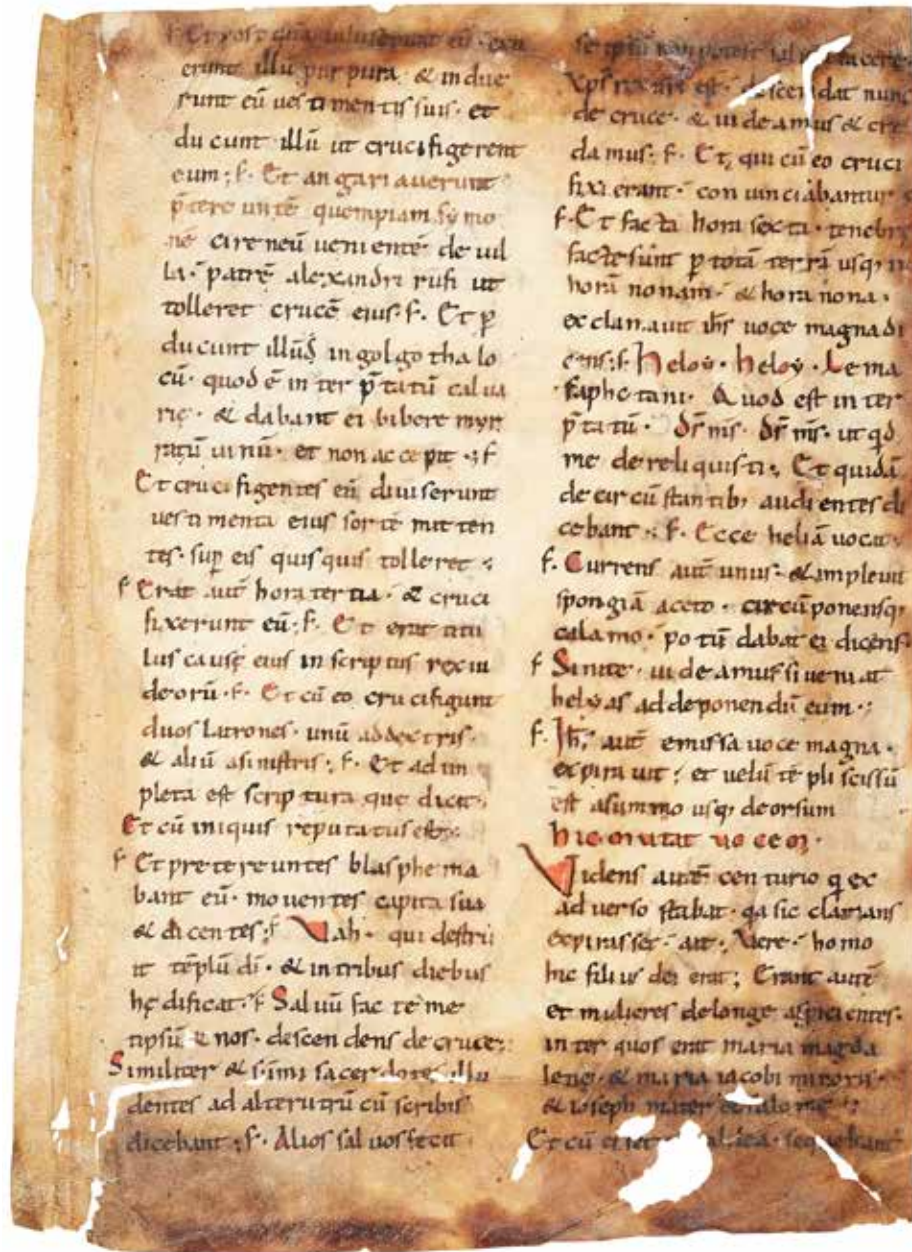 Et post quā inluserunt eū · exu
erunt illū purpura · & indue
runt eū uestimentis suis · et
ducunt illū ut crucifigerent
eum ; f · Et angariauerunt
p̄tereuntē quempiam sẏmo
nē cireneū uenientē de uil
la · patrē alexandri rufi ut
tolleret crucē eius · f · Et p̱
ducunt illū in golgotha lo
cū · quod ē inter p̄tatū calua
rię · & dabant ei bibere myr
ratū uinū · et non accepit · ; f
Et crucifigentes eū diuiserunt
uestimenta eius sortē mitten
tes · sup̱ eis quisquis tolleret ·;
f Erat autē hora tertia · & cruci
fixerunt eū ; f · Et erat titu
lus causę eius inscriptus rex iu
deorū · f · Et cū eo crucifigunt
duos latrones · unū addextris ·
& aliū asinistris ; f · Et adim
pleta est scriptura que dicit ·
Et cū iniquis reputatus est ·;
f Et pretereuntes blasphema
bant eū · mouentes capita sua
& dicentes ; f Vah · qui destru
it tēplū dī · & in tribus diebus
hędificat · f Saluū fac te me
tipsū & nos · descendens de cruce ;
Similiter & sūmi sacerdotes illu
dentes ad alterutrū cū scribis
dicebant ; f · Alios saluos fecit
se ipsū non potest saluū facere ·
Xps rex est · descendat nunc
de cruce · & uideamus & cre
damus ; f · Et qui cū eo cruci
fixi erant · conuinciabantur
f · Et facta hora sexta · tenebrę
factę sunt p̱ totā terrā usq;
horā nonam · & hora nona ·
exclamauit ihs uoce magna di
cens ; f · heloẏ · heloẏ · Lema
saphetani · Quod est inter
p̄tatū · ds̄ ms · ds̄ ms · ut qd
me dereliquisti ; Et quidā
de circūstantib; audientes di
cebant ·; f · Ecce heliā uocat ·
f · Currens autē unus · & impleuit
spongiā aceto · circūponensq;
calamo · potū dabat ei dicens ·
f Sinite · uideamus si ueniat
helyas ad deponendū eum ·;
f · Ihs autē emissa uoce magna ·
expirauit ; et uelū tēpli scissū
est asummo usq; deorsum
hic mutat uocem ·
Videns autē centurio q ex
aduerso stabat · qa sic clamans
expirasset · ait · Vere · homo
hic filius dei erat ; Erant autē
et mulieres delonge aspicientes ·
inter quos erat maria magda
lenę · & maria iacobi minoris ·
& ioseph mater et salome ·;
Et cū sequebant